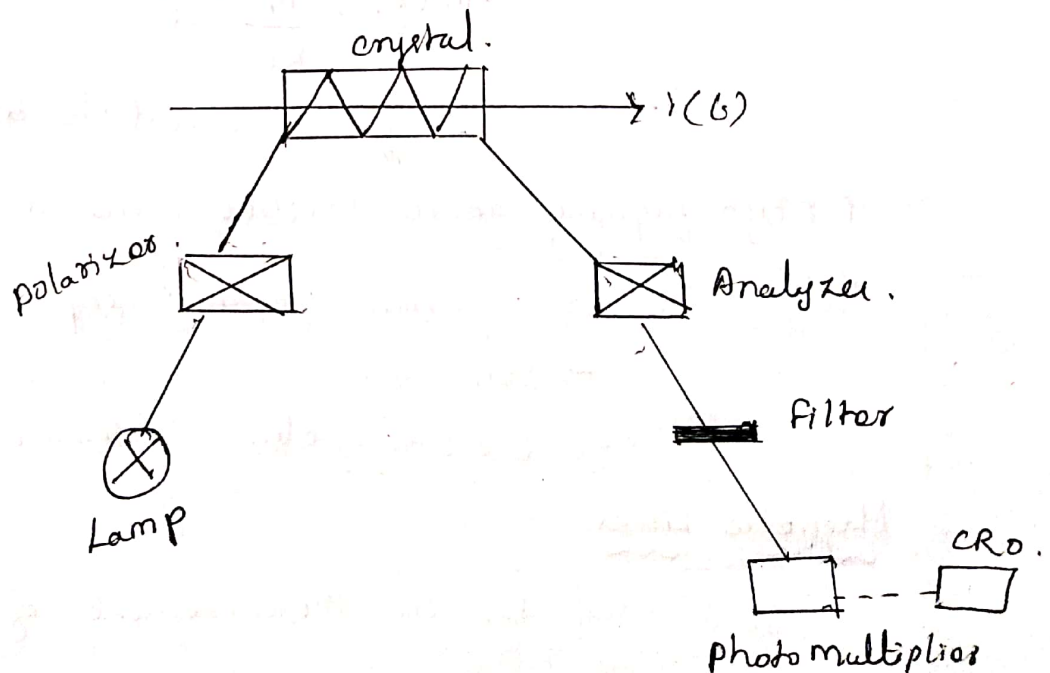 crystal.
i(t)
polarizer.
Analyzer.
Filter
Lamp
CRO.
photo multiplier